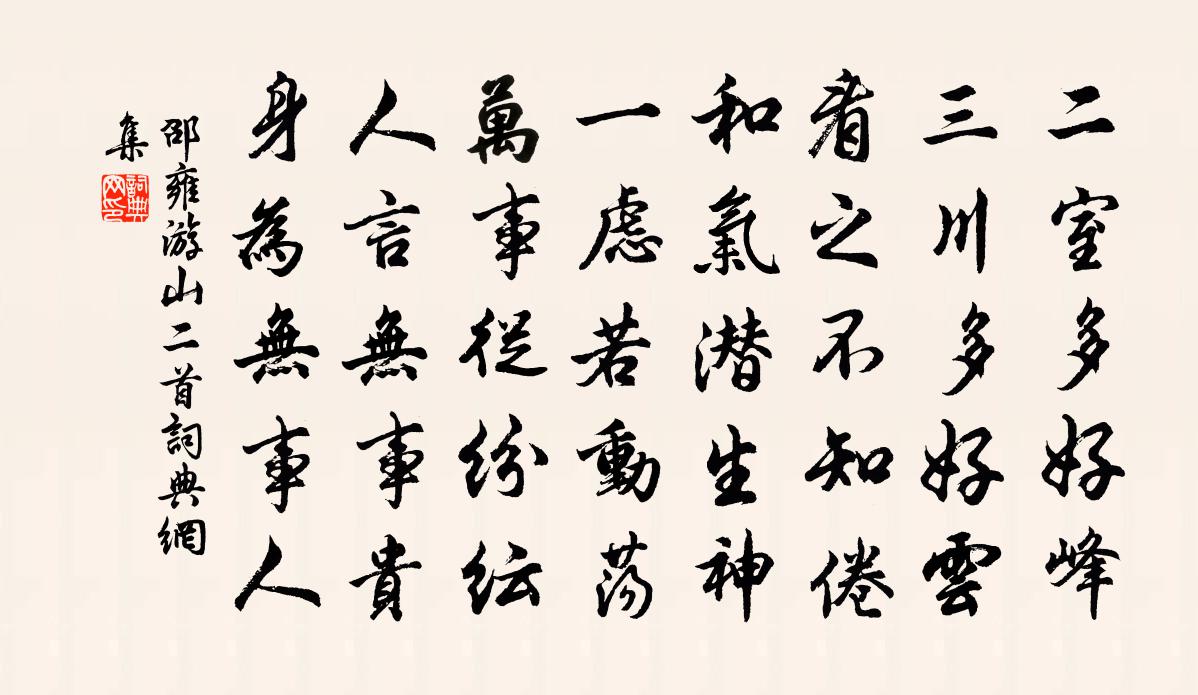 二室多好峰
三川多好雲
看之不知倦
和氣潛生神
一慮若動蕩
萬事從紛紜
人言無事貴
身為無事人
邵雍游山二首詞典網
集
詞典網印